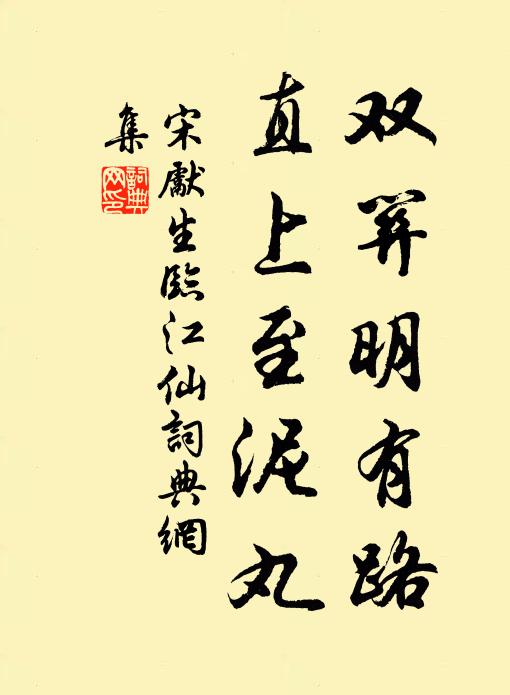 双关明有路
直上至泥丸
宋獻生臨江仙詞典網
集
詞典
网印